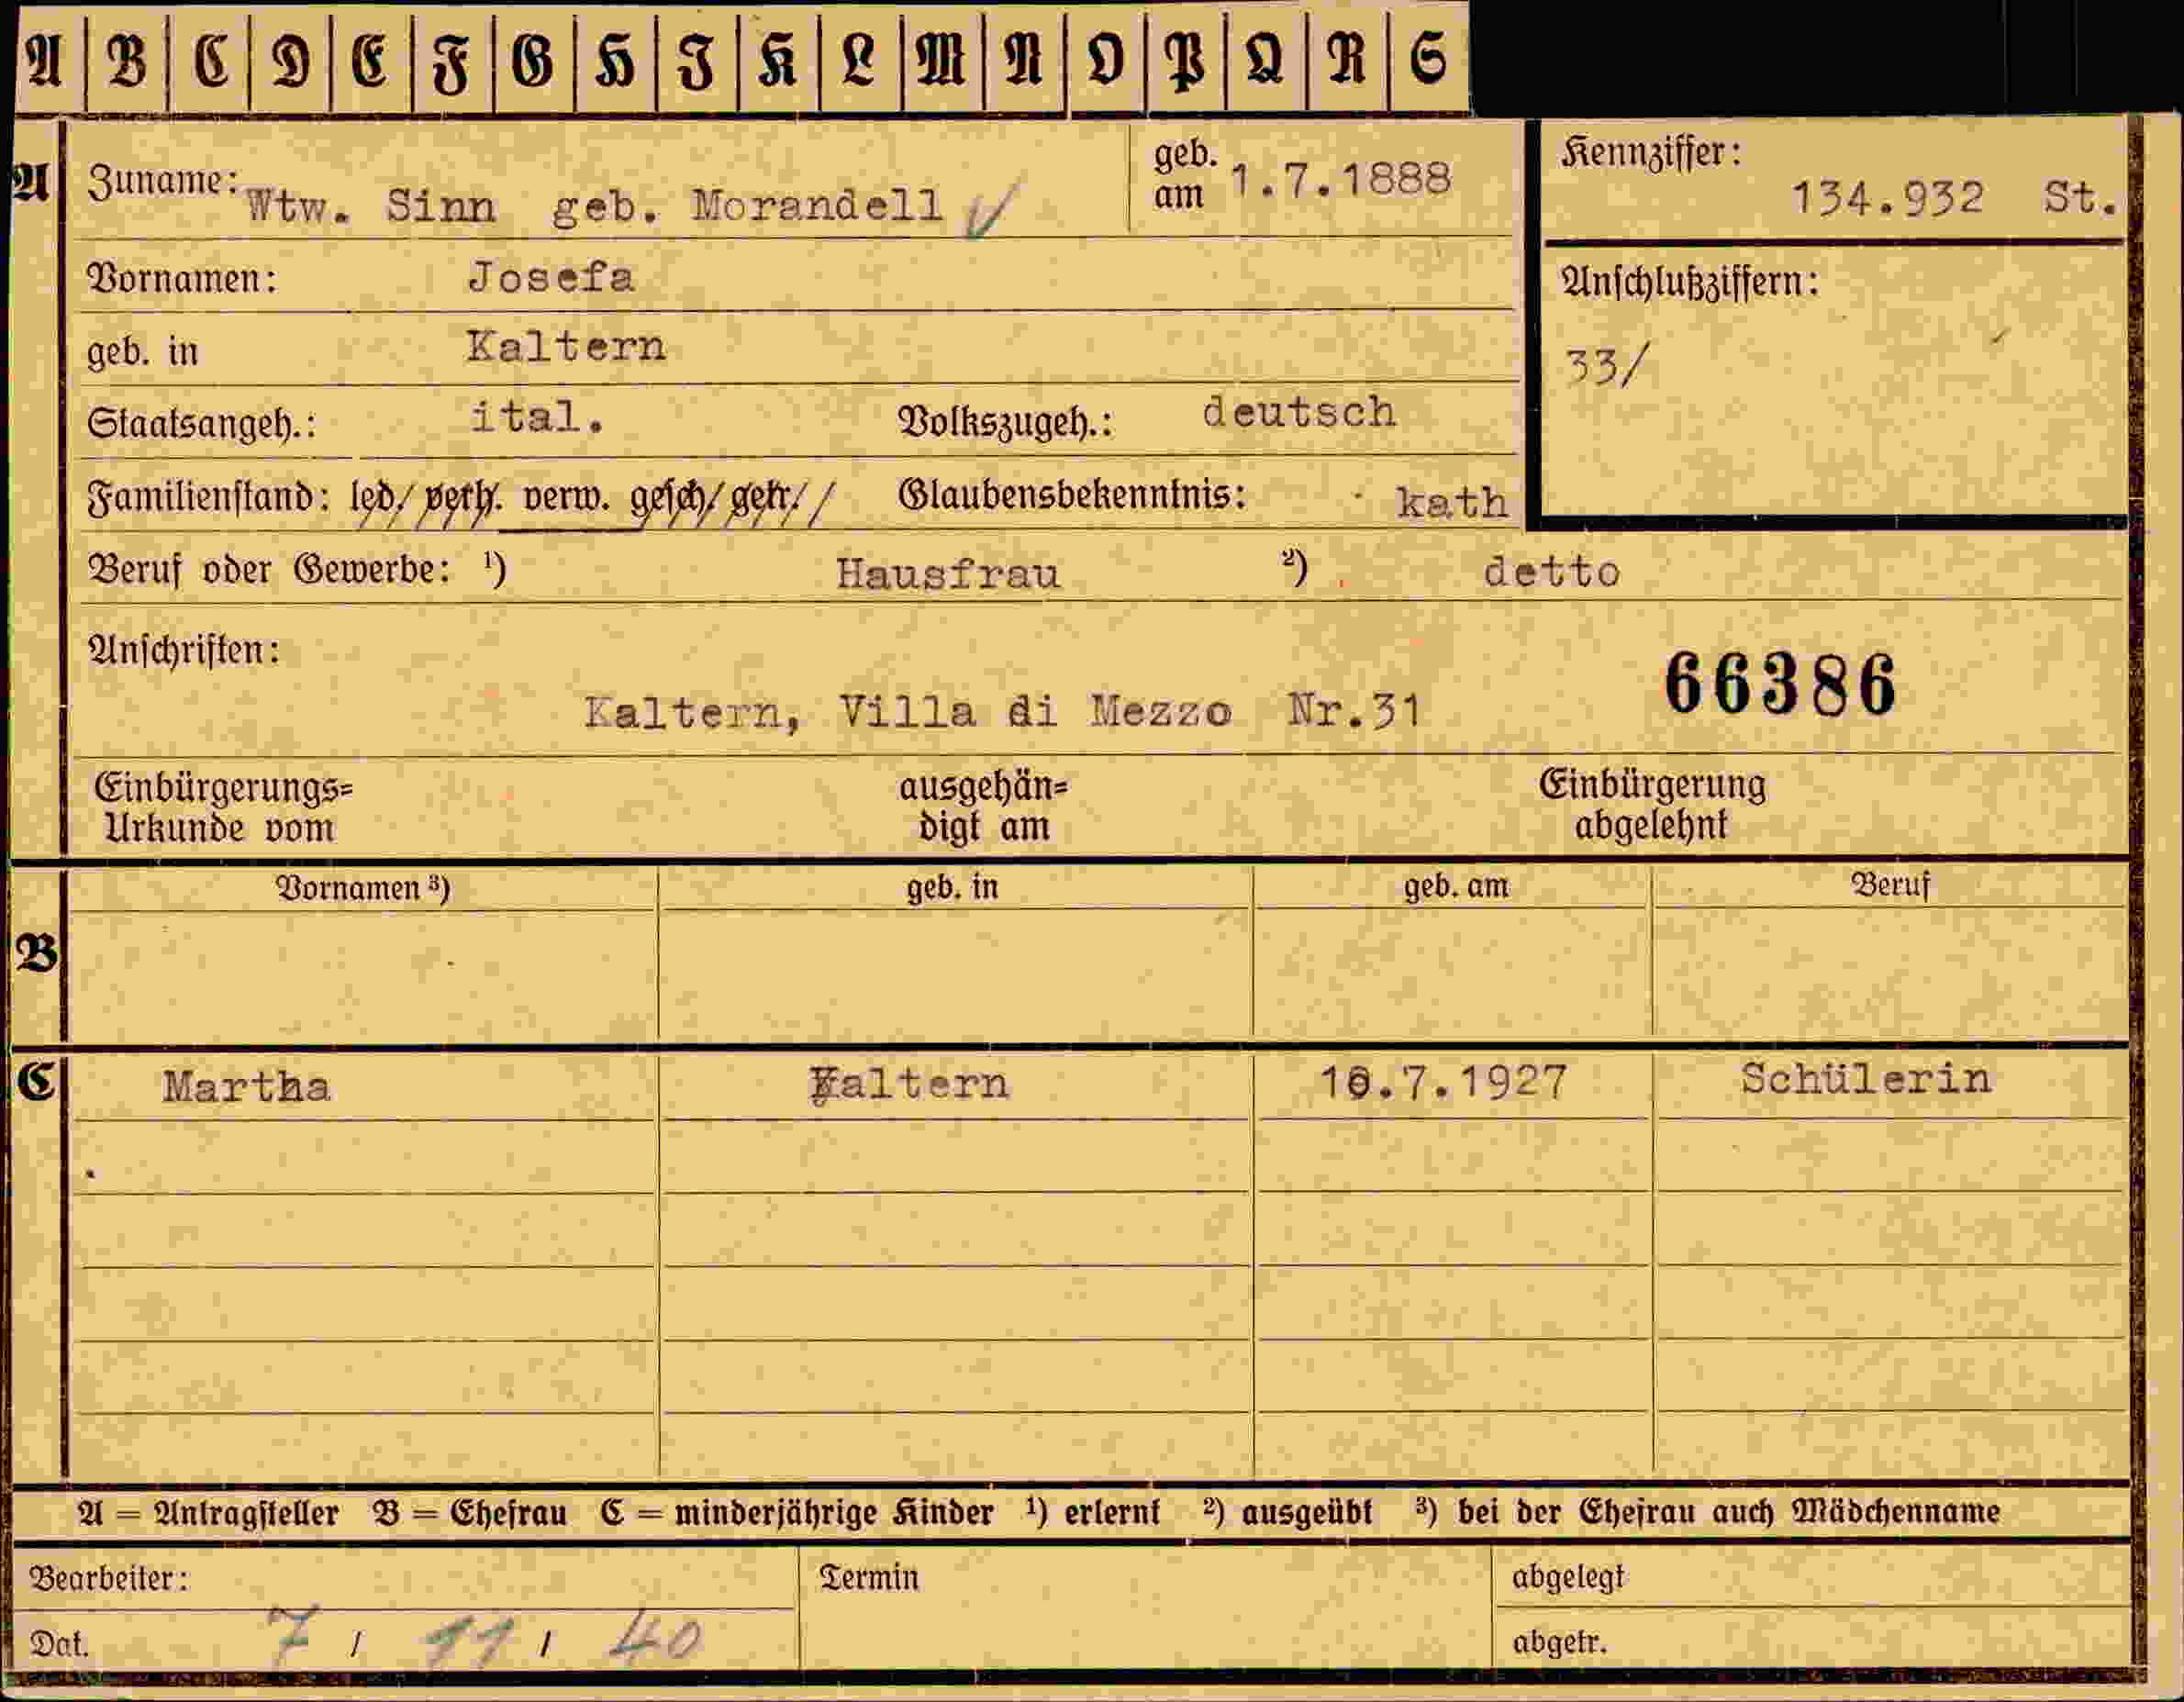 A B C D E F G H I K L M N O P Q R S
A Zuname: Wtw. Sinn geb. Morandell geb. am 1.7.1888
Kennziffer: 134.932 St.
Vornamen: Josefa
Anschlußziffern:
33/
geb. in Kaltern
Staatsangeh.: ital. Volkszugeh.: deutsch
Familienstand: led/ verh. verw. gesch/ getr. Glaubensbekenntnis: kath
Beruf oder Gewerbe: ¹) Hausfrau ²) detto
Anschriften:
66386
Kaltern, Villa di Mezzo Nr.31
Einbürgerungs= ausgehän= Einbürgerung
Urkunde vom digt am abgelehnt
Vornamen ³) geb. in geb. am Beruf
B
C Martha Kaltern 10.7.1927 Schülerin
A = Antragsteller B = Ehefrau C = minderjährige Kinder ¹) erlernt ²) ausgeübt ³) bei der Ehefrau auch Mädchenname
Bearbeiter: Termin abgelegt
Dat. 7 / 11 / 40 abgetr.